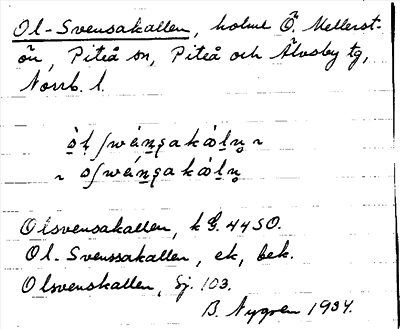 Ol-Svensakallen, holme Ö. Mellerst-
ön, Piteå sn, Piteå och Älvsby tg,
Norrb. l.
Olsvensakallen, k G. 4450.
Ol. Svenssakallen, ek, bek.
Olsvenskallen, Sj. 103.
B. Nygren 1934.